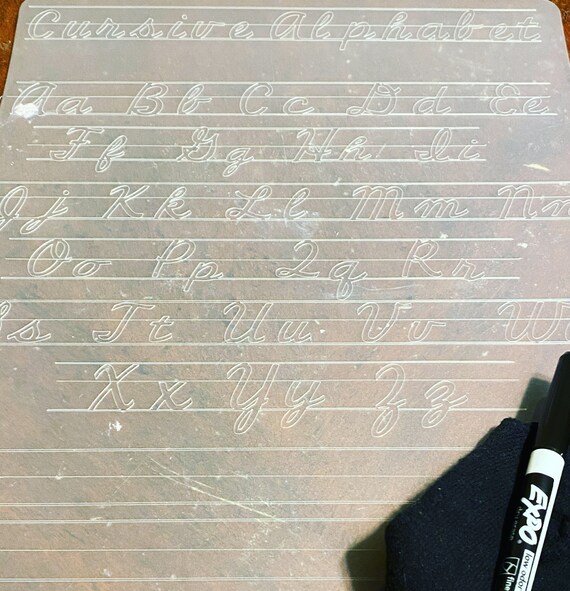 Cursive Alphabet
Aa Bb Cc Dd Ee
Ff Gg Hh Ii
Jj Kk Ll Mm Nn
Oo Pp Qq Rr
Ss Tt Uu Vv W
Xx Yy Zz
EXPO
low odor
fine